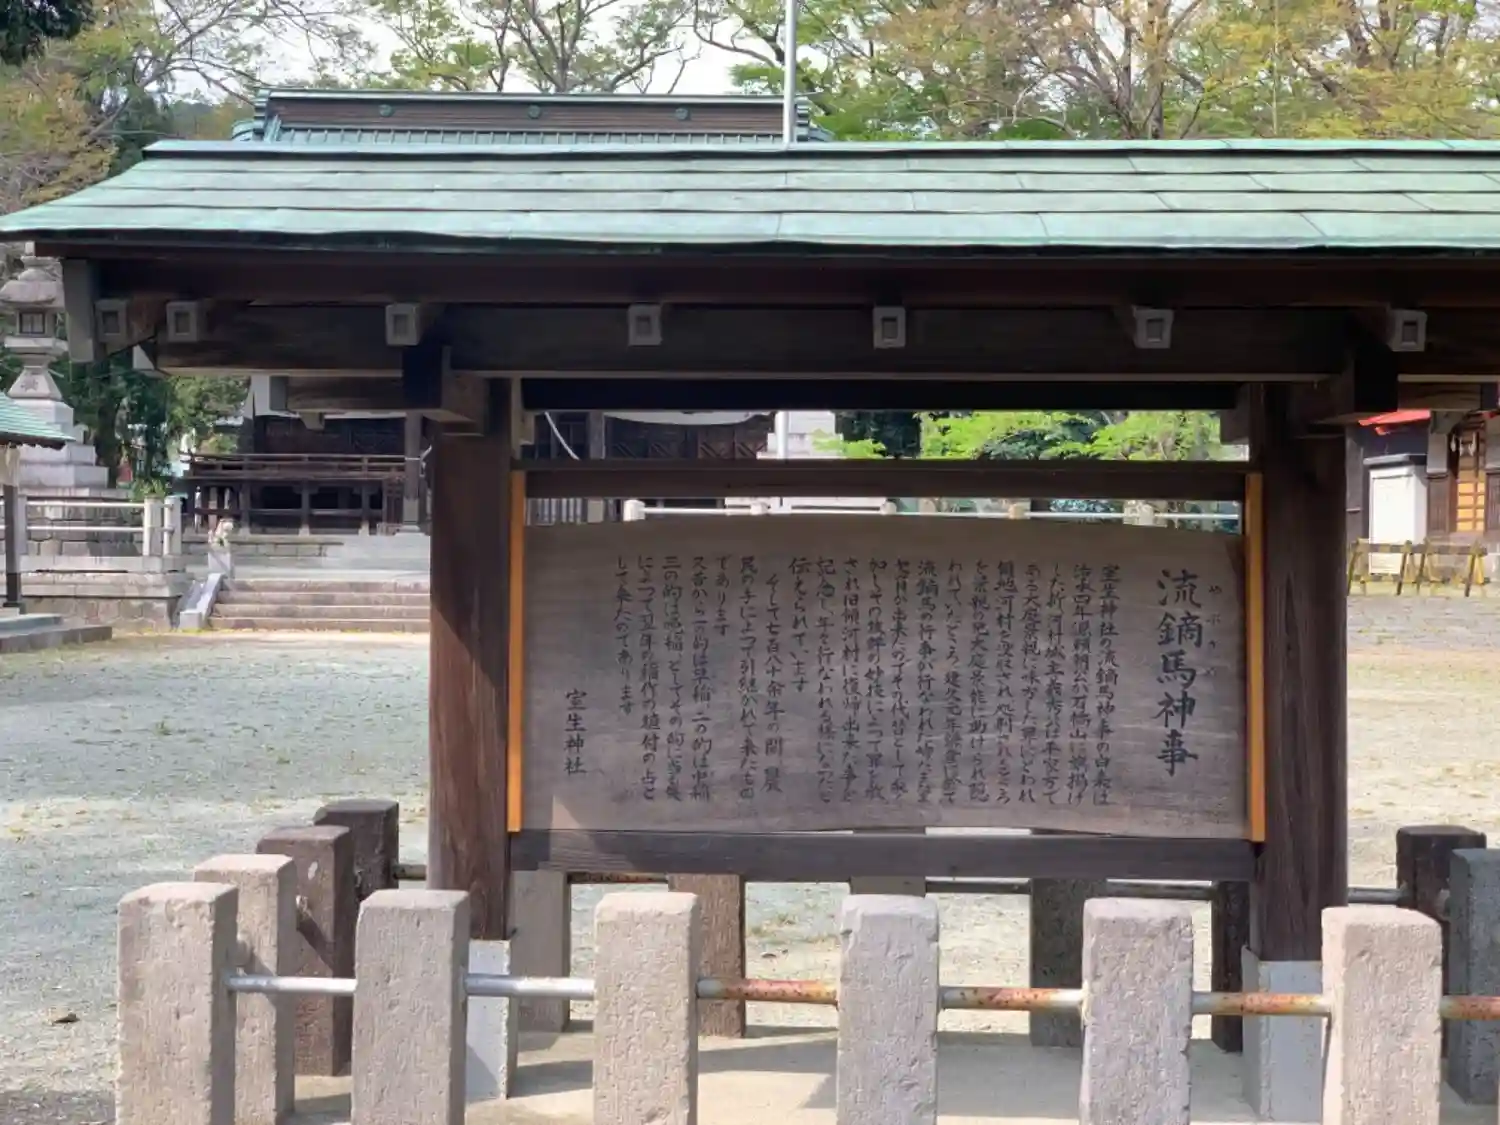 流鏑馬神事
やぶさめ
室生神社の流鏑馬神事の由来は
治承四年源頼朝公が石橋山に旗揚げ
した折河村城主義秀は平家方で
ある大庭景親に味方した罪にとわれ
領地河村を没収され処刑されるところ
を景親の兄大庭景能に助けられ
われていたところ建久元年鎌倉で
流鏑馬の行事が行なわれた時
欠員が出来たのでその代替として参
加しその抜群の妙技によって罪を赦
され旧領河村に復帰出来た事を
記念し年々行なわれる様になったと
伝えられています
そして七百八十余年の間農
民の手によって引継がれて来たもの
であります
又昔から一の的は早稲二の的は中稲
三の的は晩稲としてその的に当る矢
によって翌年の稲作の植付の占と
して来たのであります
室生神社